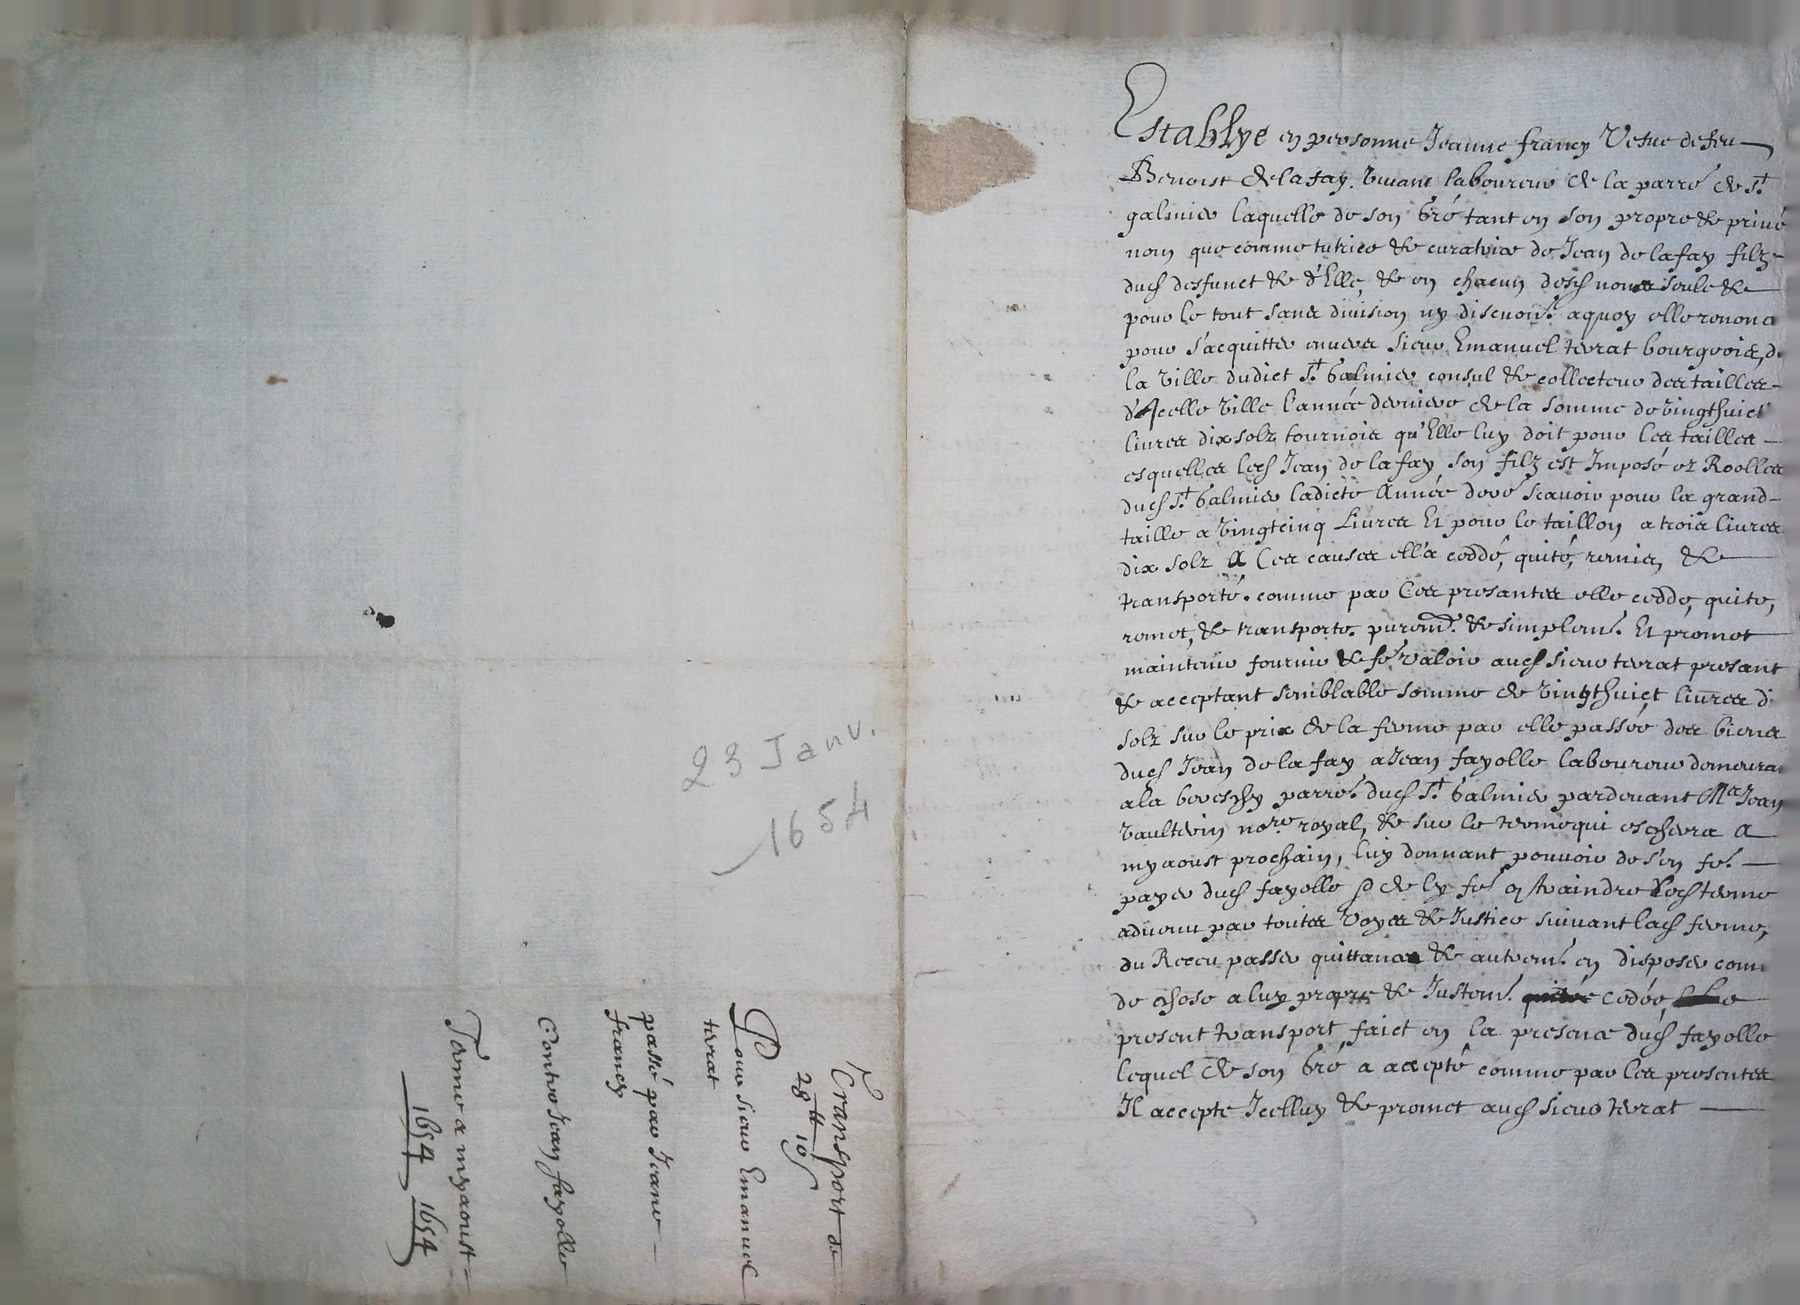 23 Janv.
1654
Transport de
28 lt 10 s
Pour sieur Emanuel
terrat
passé par Jeanne
francy
Contre Jean fayolle
Terme a myaoust
1654 1654
Establye en personne Jeanne francy Vefue de feu
Benoist de la fay. viuant laboureur de la parro. de St
galmier laquelle de son gré tant en son propre & priué
nom que comme tutrice & curatrice de Jean de la fay filz
dud desfunct & d'Elle, & en chacun desd noms seule &
pour le tout sans diuision ny discuon. a quoy elle renonce
pour s'acquitter enuers sieur Emanuel terrat bourgeois, de
la ville dudict St Galmier consul & collecteur des tailles
d'Icelle ville l'année derniere de la somme de vingthuict
liures dix solz tournois qu'Elle luy doit pour les tailles
esquelles led Jean de la fay son filz est Imposé ez Roolles
dud St Galmier ladicte Année dere scauoir pour la grand
taille a vingtcinq Liures Et pour le taillon a trois liures
dix solz A Ces causes ell'a ceddé, quité, remis, &
transporté. comme par Ces presantes elle cedde, quite,
remet, & transporte. purem. & simplem. Et promet
maintenir fournir & fe valoir aud sieur terrat presant
& acceptant semblable somme de vingthuict liures d
solz sur le prix de la ferme par elle passée des biens
dud Jean de la fay a Jean fayolle laboureur demeura
a la parro. dud St Galmier pardeuant Me Jean
Vaultrin nore royal, & sur le terme qui eschera A
myaoust prochain, luy donnant pouuoir de s'en fe.
payer dud fayolle de ly fe constraindre led terme
aduenu par toutes Voyes de Justice suiuant lad ferme,
du Receu passer quittances & autrem. en disposer comm
de chose a luy propre & Justem. cedée,
present transport faict en la presence dud fayolle
lequel de son Gré a accepté comme par les presentes
Il accepte Icelluy & promet aud sieur terrat